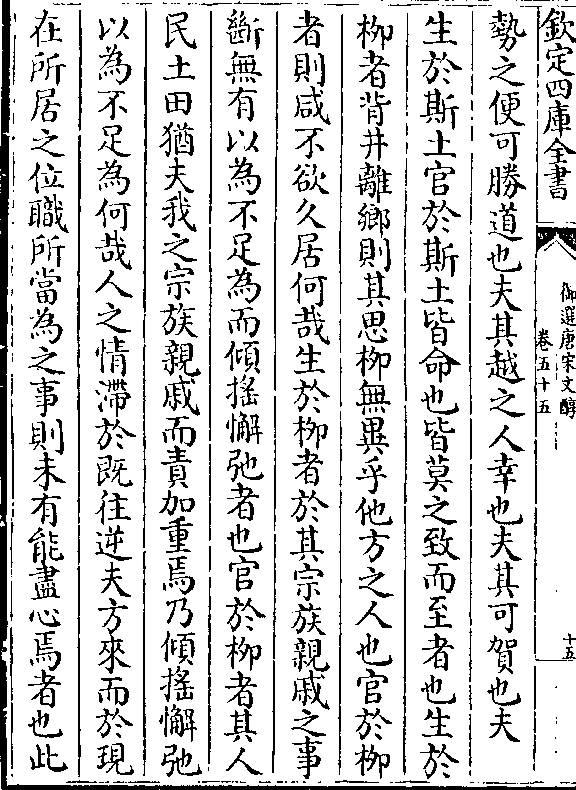 欽定四庫全書
御選唐宋文醇
卷五十五
十五
勢之便可勝道也夫其越之人幸也夫其可賀也夫
生於斯土官於斯土皆命也皆莫之致而至者也生於
柳者背井離鄉則其思柳無異乎他方之人也官於柳
者則咸不欲久居何哉生於柳者於其宗族親戚之事
斷無有以為不足為而傾搖懈弛者也官於柳者其人
民土田猶夫我之宗族親戚而責加重焉乃傾搖懈弛
以為不足為何哉人之情滯於既往逆夫方來而於現
在所居之位職所當為之事則未有能盡心焉者也此